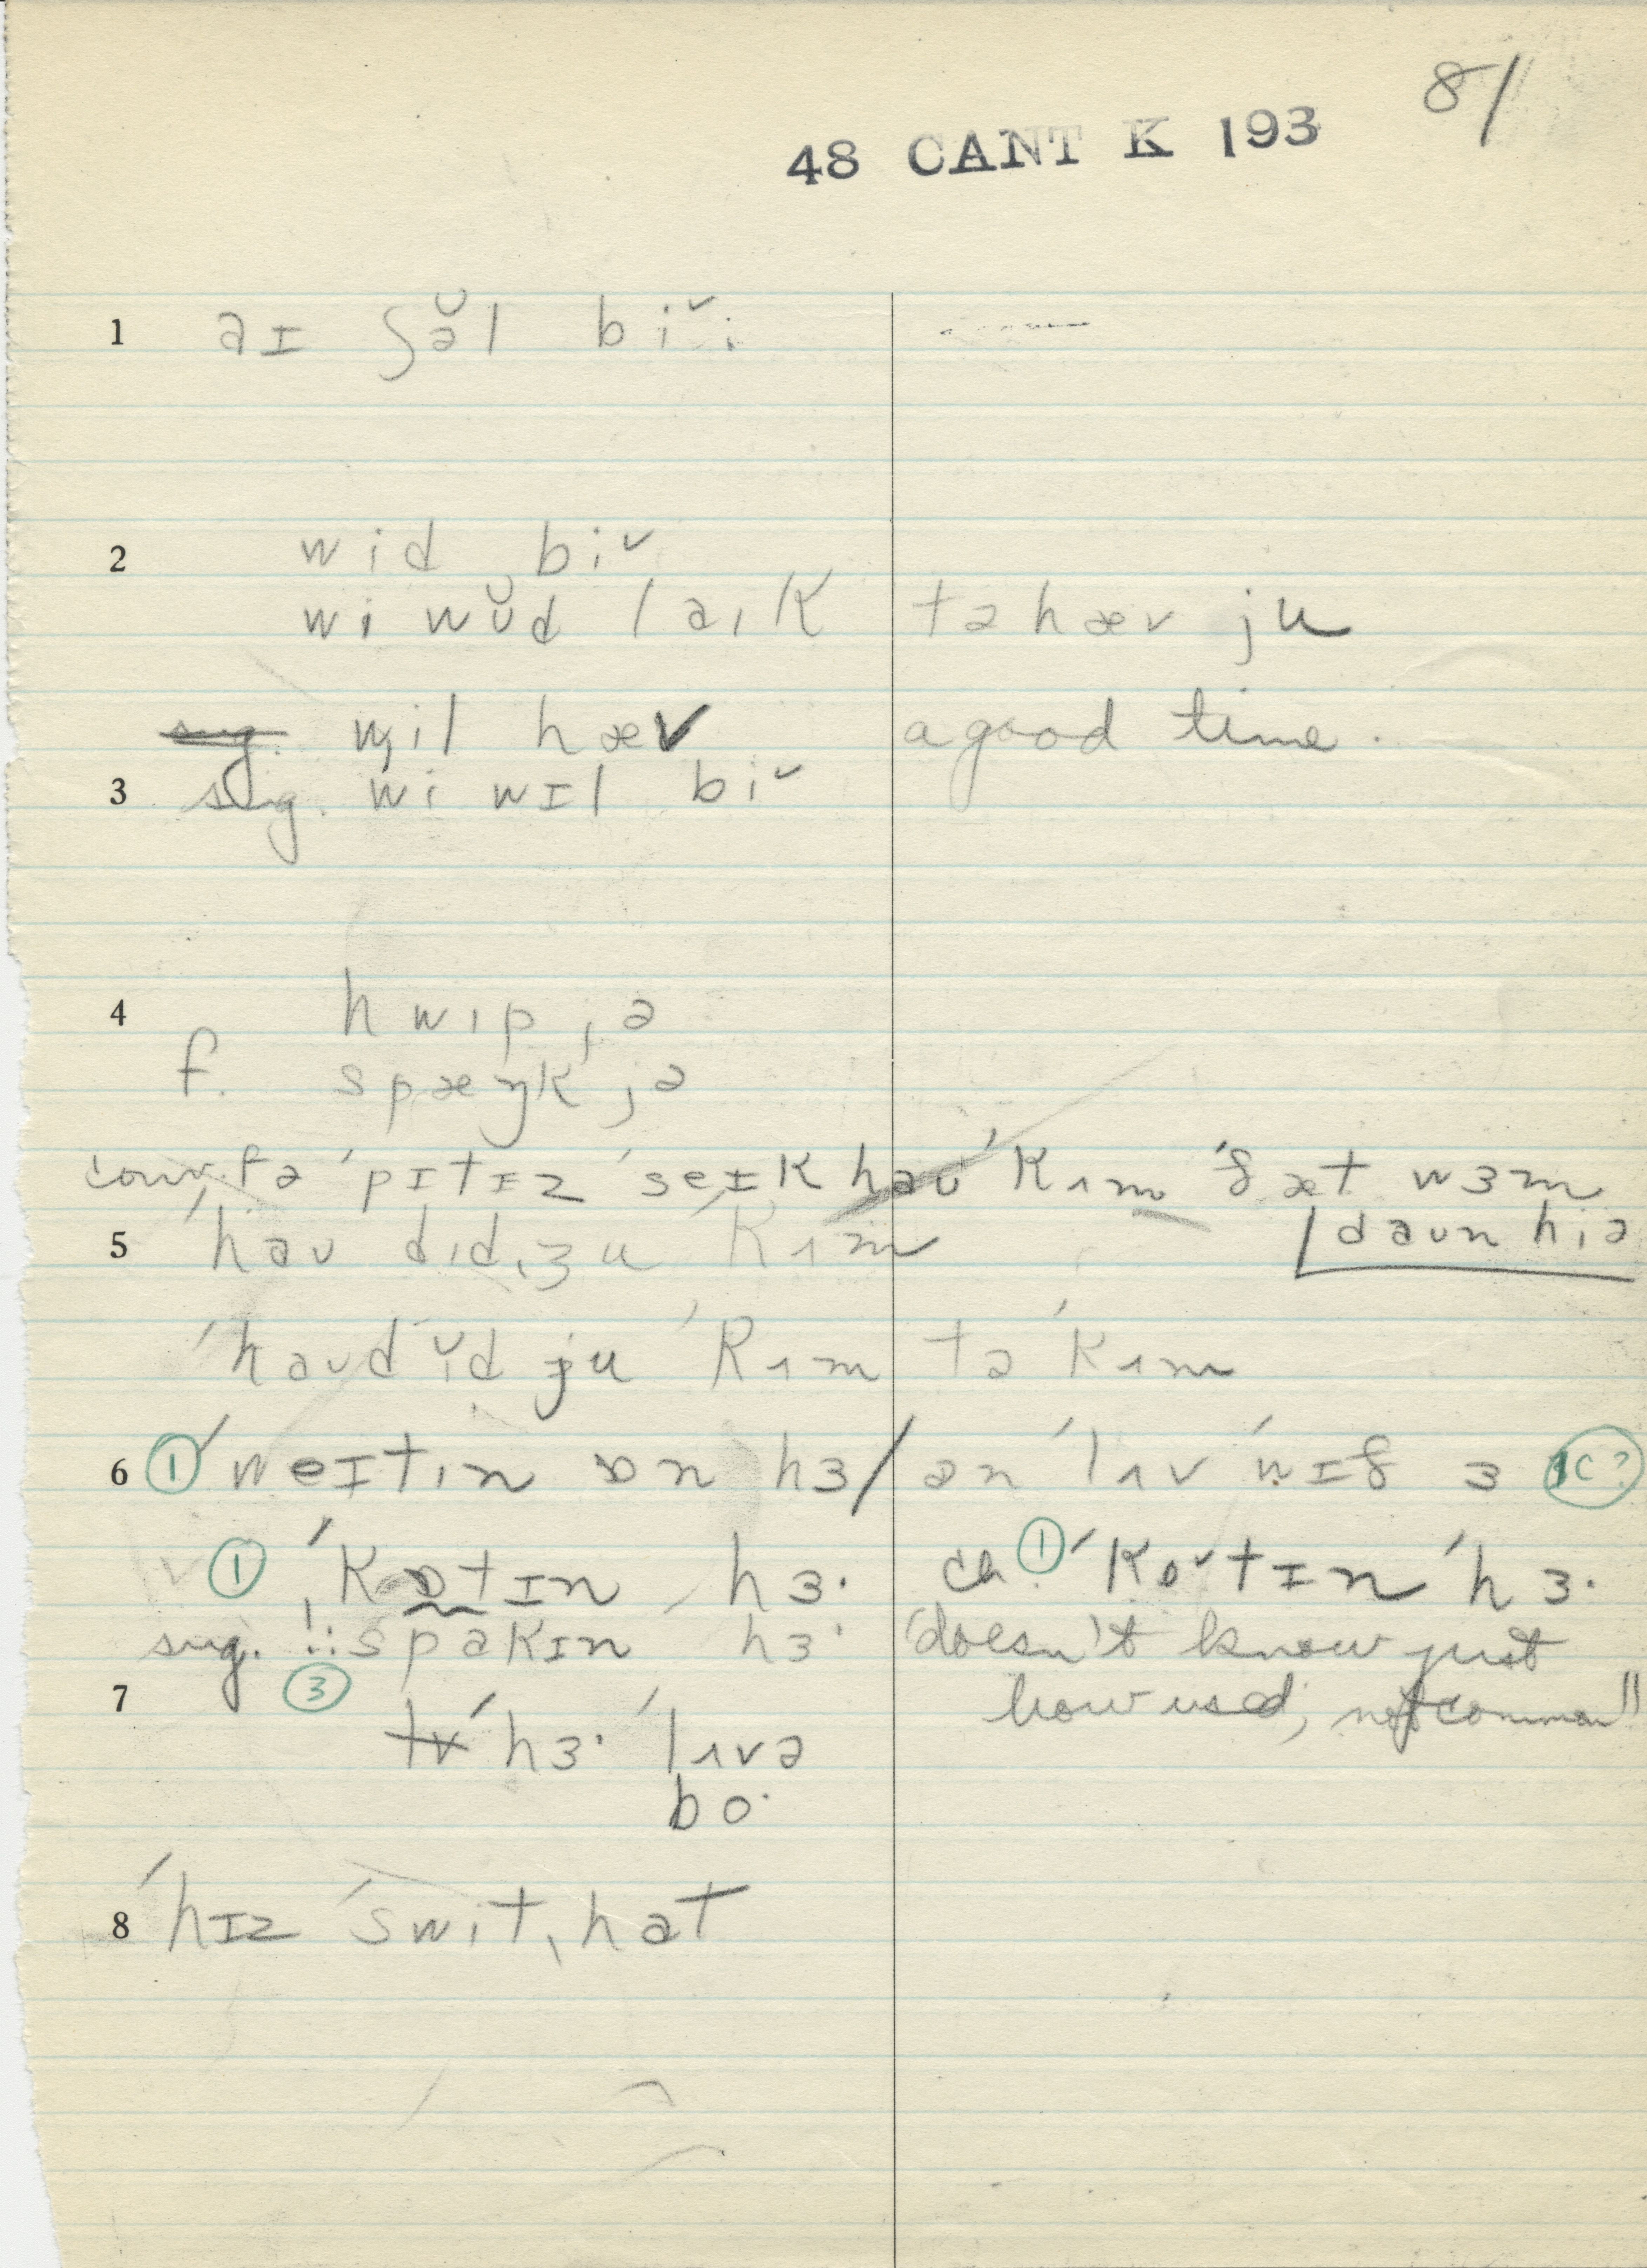 81
48 CANT K 193
1 aɪ ʃə̆l biˇ:
2 wid biˇ
wi wʊ̆d laɪk tə hæv ju
wil hæv a good time.
3 sug. wi wɪl biˇ
4 hwɪp jə
f. spæŋk jə
conv. fə ˈpɪtɪz ˈseɪk haʊ ˈkʌm ˈðæt wɜm
daʊn hiə
5 ˈhaʊ dɪdˌʒu ˈkʌm
ˈhaʊ dɪ̆d ju ˈkʌm tə ˈkʌm
6 ① ˈweɪtɪn ɒn hɜ / ən ˈlʌv ˈwɪð ɜ 1c?
① ˈkɒtɪn hɜ· ch. ① ˈkɒˇtɪn ˈhɜ·
sug. !: spakɪn hɜ· "doesn't know just
7 ③ how used; not common"
ˈhɜ· ˈlʌvə
bo·
8 ˈhɪz ˈswitˌhat